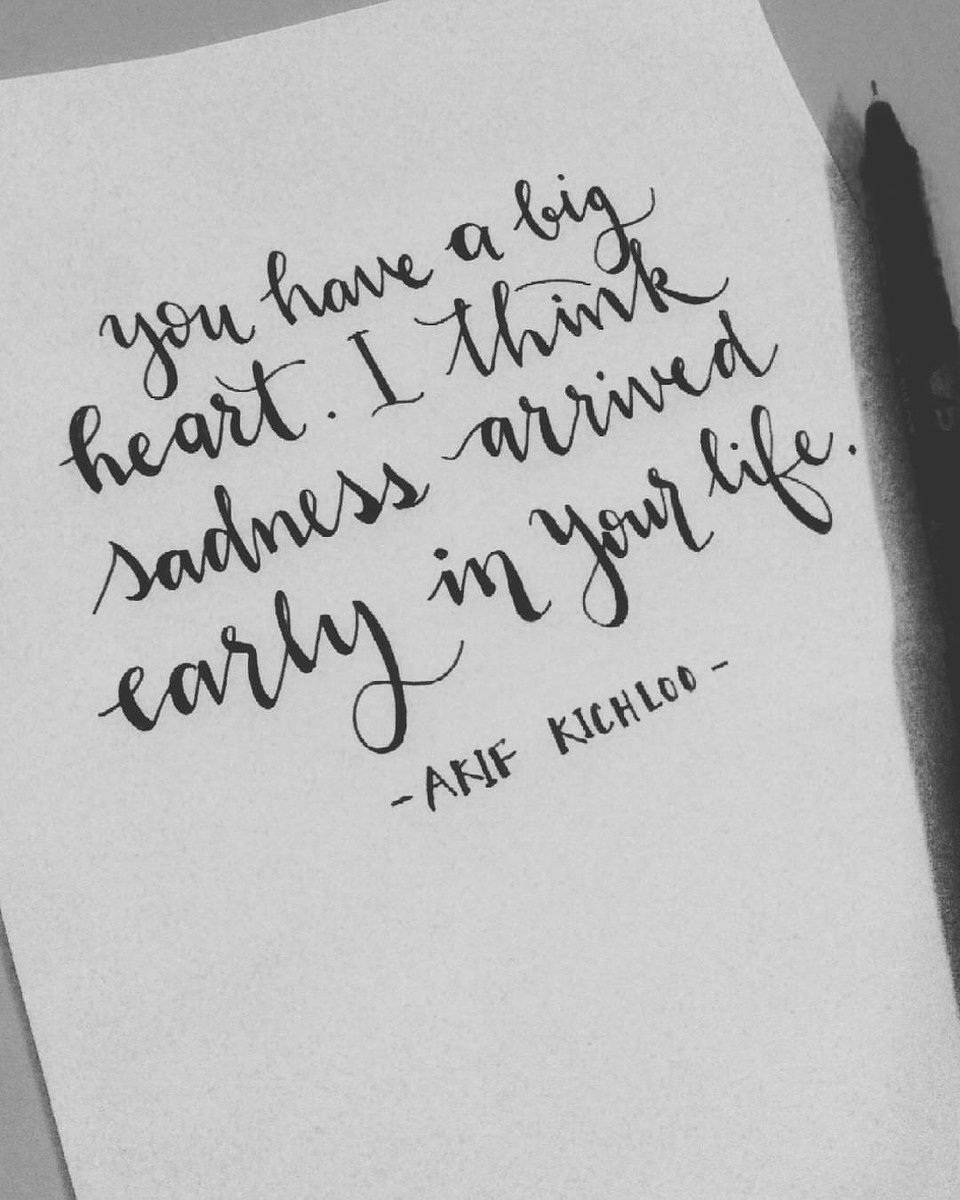 you have a big
heart. I think
sadness arrived
early in your life.
- AKIF KICHLOO -